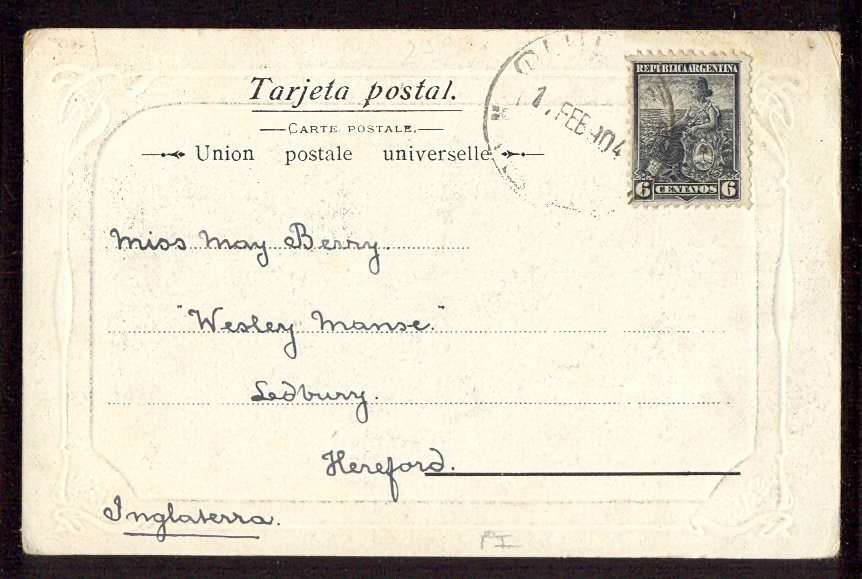 Tarjeta postal.
CARTE POSTALE.
Union postale universelle
1. FEB 904
REPÚBLICA ARGENTINA
6 CENTAVOS 6
Miss May Berry.
"Wesley Manse"
Ledbury.
Hereford.
Inglaterra.